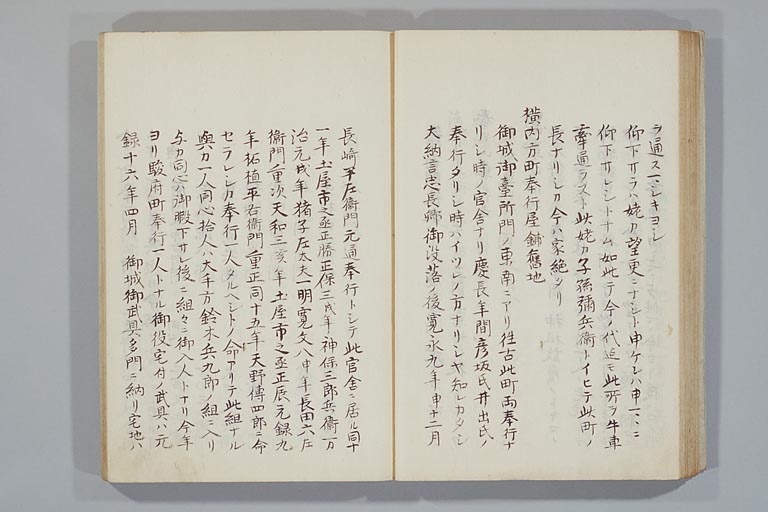 ヲ通ス可シキヨシ
仰下サラハ姥カ望更ニナシト申ケレハ申一トニ
仰下サレシトナム如此テ今ノ代迄モ此所ヲ牛車
牽通ラスト此姥カ子孫彌兵衛トイヒテ此町ノ
長ナリシカ今ハ家絶タリ
横内方町奉行屋鋪舊地
御城御臺所門ノ東南ニアリ往古此町両奉行ナ
リシ時ノ官舎ナリ慶長年間彦坂氏井出氏ノ
奉行タリシ時ハイツレノ方ナリシヤ知レカタシ
大納言忠長卿御没落ノ後寛永九年申十二月
長崎半左衛門元通奉行トシテ此官舎ニ居ル同十
一年土屋市之丞正勝正保三戌年神保三郎兵衛万
治元戌年猪子左太夫一明寛文八申年長田六左
衛門重次天和三亥年土屋市之丞正辰元録九
年柘植平右衛門重正同十五年天野傳四郎ニ命
セラレシカ奉行一人タルヘシトノ命アリテ此組ナル
與力一人同心拾人ハ大手方鈴木兵九郎ノ組ニ入リ
与力同心ハ御暇下サレ後ニ組々ニ御入人トナリ今年
ヨリ駿府町奉行一人トナル御役宅付ノ武具ハ元
録十六年四月 御城御武具多門ニ納リ宅地ハ